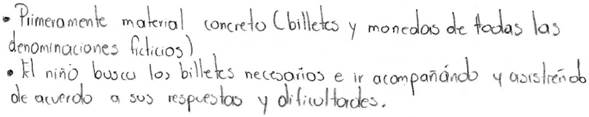 • Primeramente material concreto (billetes y monedas de todas las
denominaciones ficticios)
• El niño busca los billetes necesarios e ir acompañándo y asistiéndo
de acuerdo a sus respuestas y dificultardes.